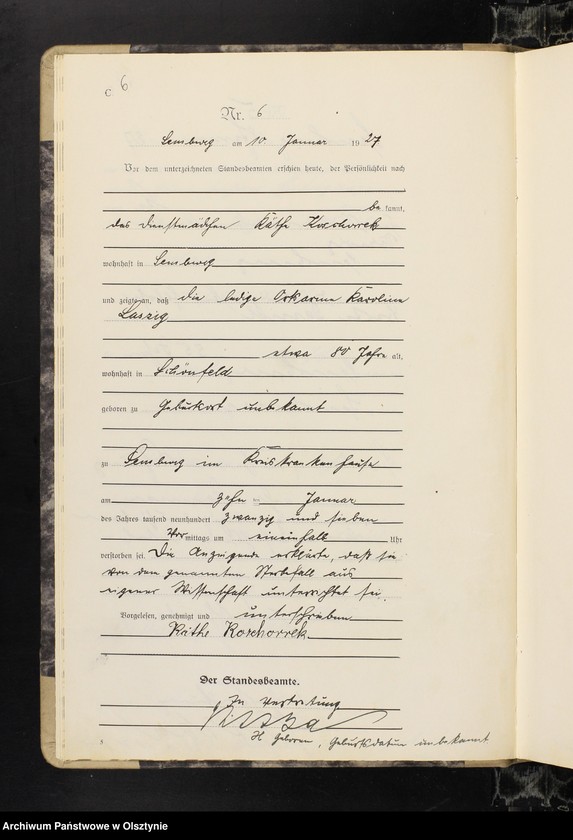 C 6
Nr. 6
Sensburg am 10. Januar 1927
Vor dem unterzeichneten Standesbeamten erschien heute, der Persönlichkeit nach
be kannt,
das Dienstmädchen Käthe Koschorrek
wohnhaft in Sensburg
und zeigte an, daß die ledige Ortsarme Karoline
Laszig
etwa 80 Jahre alt,
wohnhaft in Schönfeld
geboren zu Geburtsort unbekannt
zu Sensburg im Kreiskrankenhause
am zehn ten Januar
des Jahres tausend neunhundert zwanzig und sieben
Vor mittags um eineinhalb Uhr
verstorben sei. Die Anzeigende erklärte, daß sie
von dem genannten Sterbefall aus
eigener Wissenschaft unterrichtet sei.
Vorgelesen, genehmigt und unterschrieben
Käthe Koschorrek
Der Standesbeamte.
In Vertretung
geboren, Geburtsdatum unbekannt
Archiwum Państwowe w Olsztynie